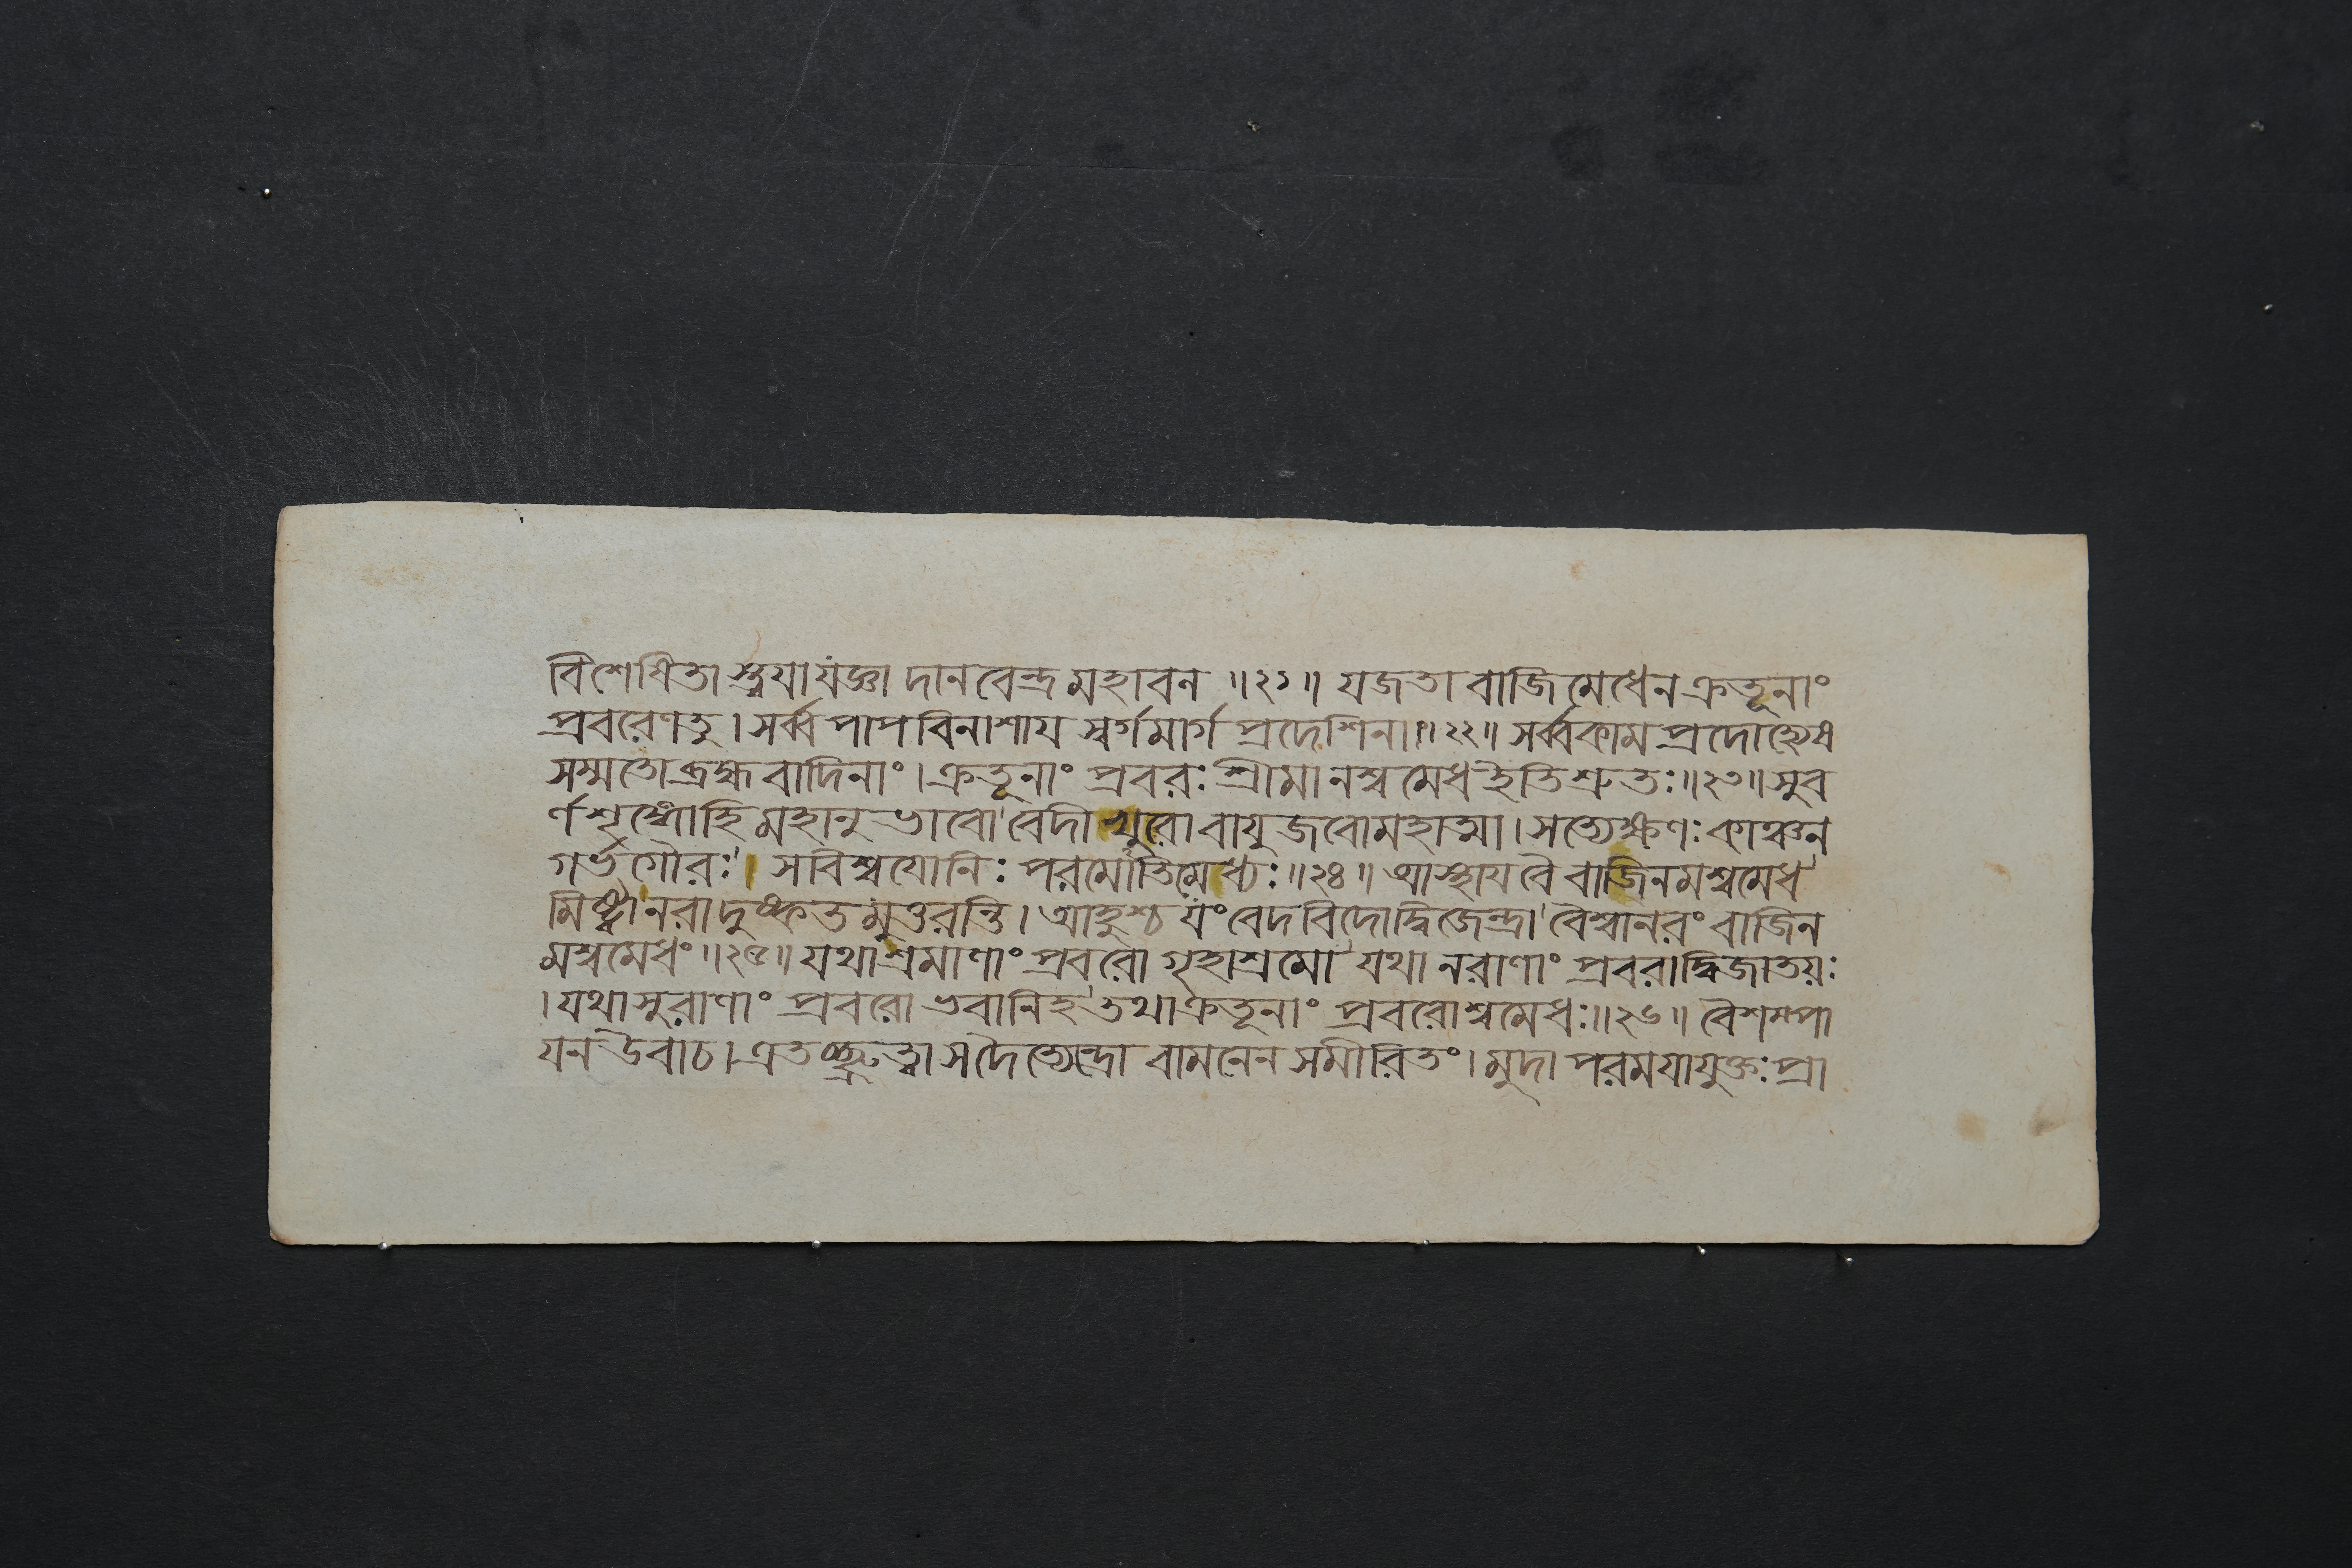 বিশেষিতাস্ত্বযাযজ্ঞা দানবেন্দ্রমহাবন ॥২১॥ যজতা বাজিমেধেনক্রতূনাং
প্রবরেণতু। সর্ব্বপাপবিনাশায স্বর্গমার্গপ্রদেশিনা॥২২॥ সর্ব্বকামপ্রদোহ্যেষ
সম্মতোব্রহ্মবাদিনাং। ক্রতূনাং প্রবরঃ শ্রীমানশ্বমেধইতিশ্রুতঃ॥২৩॥ সুব
র্ণশৃঙ্গোহিমহানুভাবো বেদীখুরোবাযুজবোমহাত্মা। সত্যেক্ষণঃকাঞ্চন
গর্ভগৌরঃ। সবিশ্বযোনিঃ পরমোতিমেধ্যঃ॥২৪॥ আস্থাযবৈবাজিনমশ্বমেধ
মিষ্ট্বানরাদুষ্কৃতমুত্তরন্তি। আহুশ্চযংবেদবিদোদ্বিজেন্দ্রা বৈশ্বানরং বাজিন
মশ্বমেধং॥২৫॥ যথাশ্রমাণাং প্রবরো গৃহাশ্রমো যথানরাণাং প্রবরাদ্বিজাতয়ঃ
। যথাসুরাণাং প্রবরো ভবানিহ তথাক্রতূনাং প্রবরোশ্বমেধঃ॥২৬॥ বৈশম্পা
যনউবাচ। এতচ্ছ্রুত্বা সদৈত্যেন্দ্রো বামনেনসমীরিতং। মুদা পরমযাযুক্তঃ প্রা